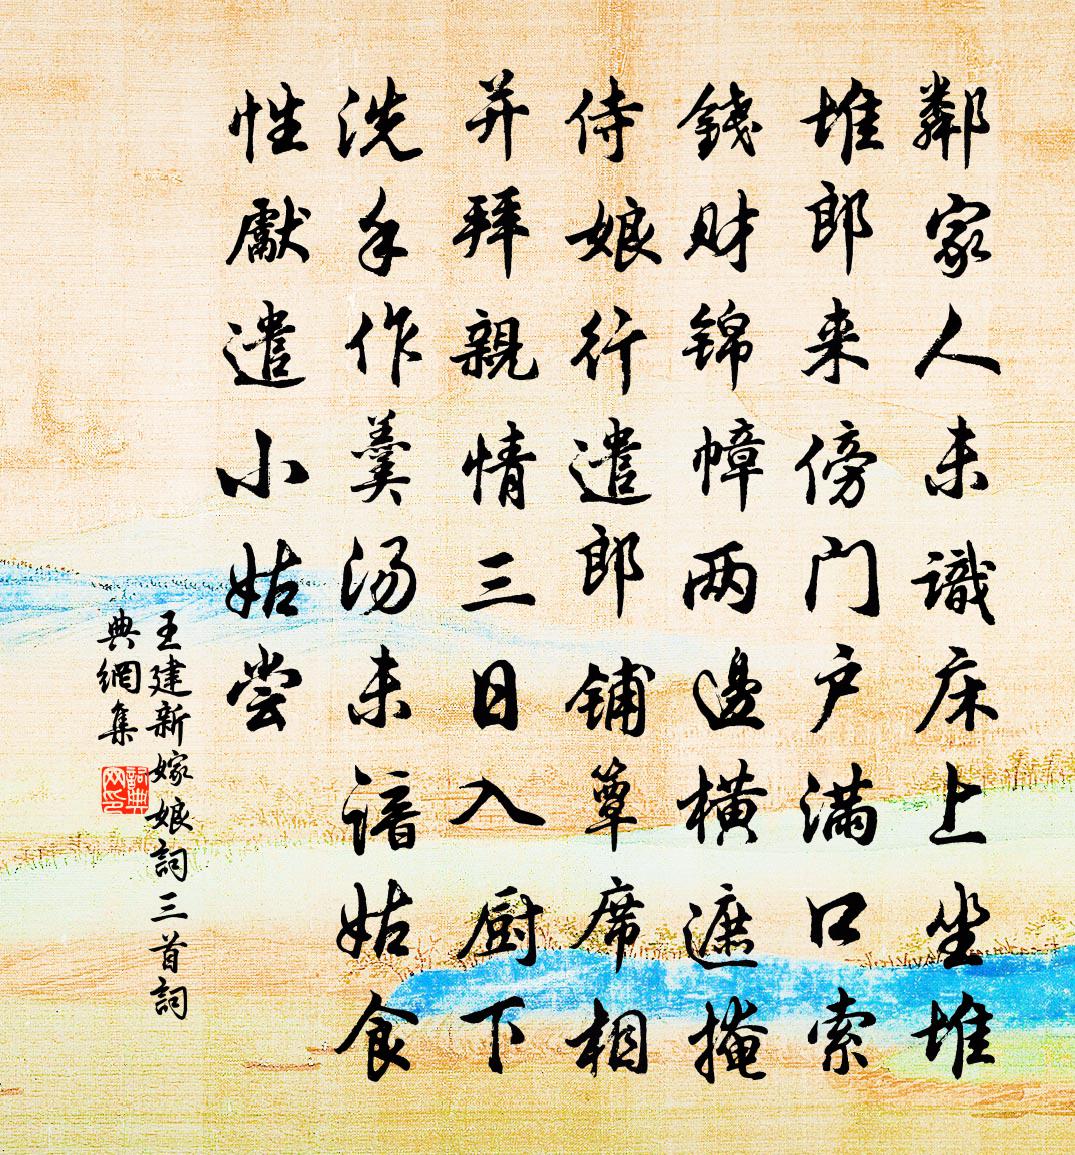 鄰家人未識床上坐堆
堆郎来傍门户滿口索
錢财錦幛两邊橫遮掩
侍娘行遣郎鋪簟席相
并拜親情三日入厨下
洗手作羹汤未諳姑食
性獻遣小姑尝
王建新嫁娘詞三首詞
典網集
詞典
网印